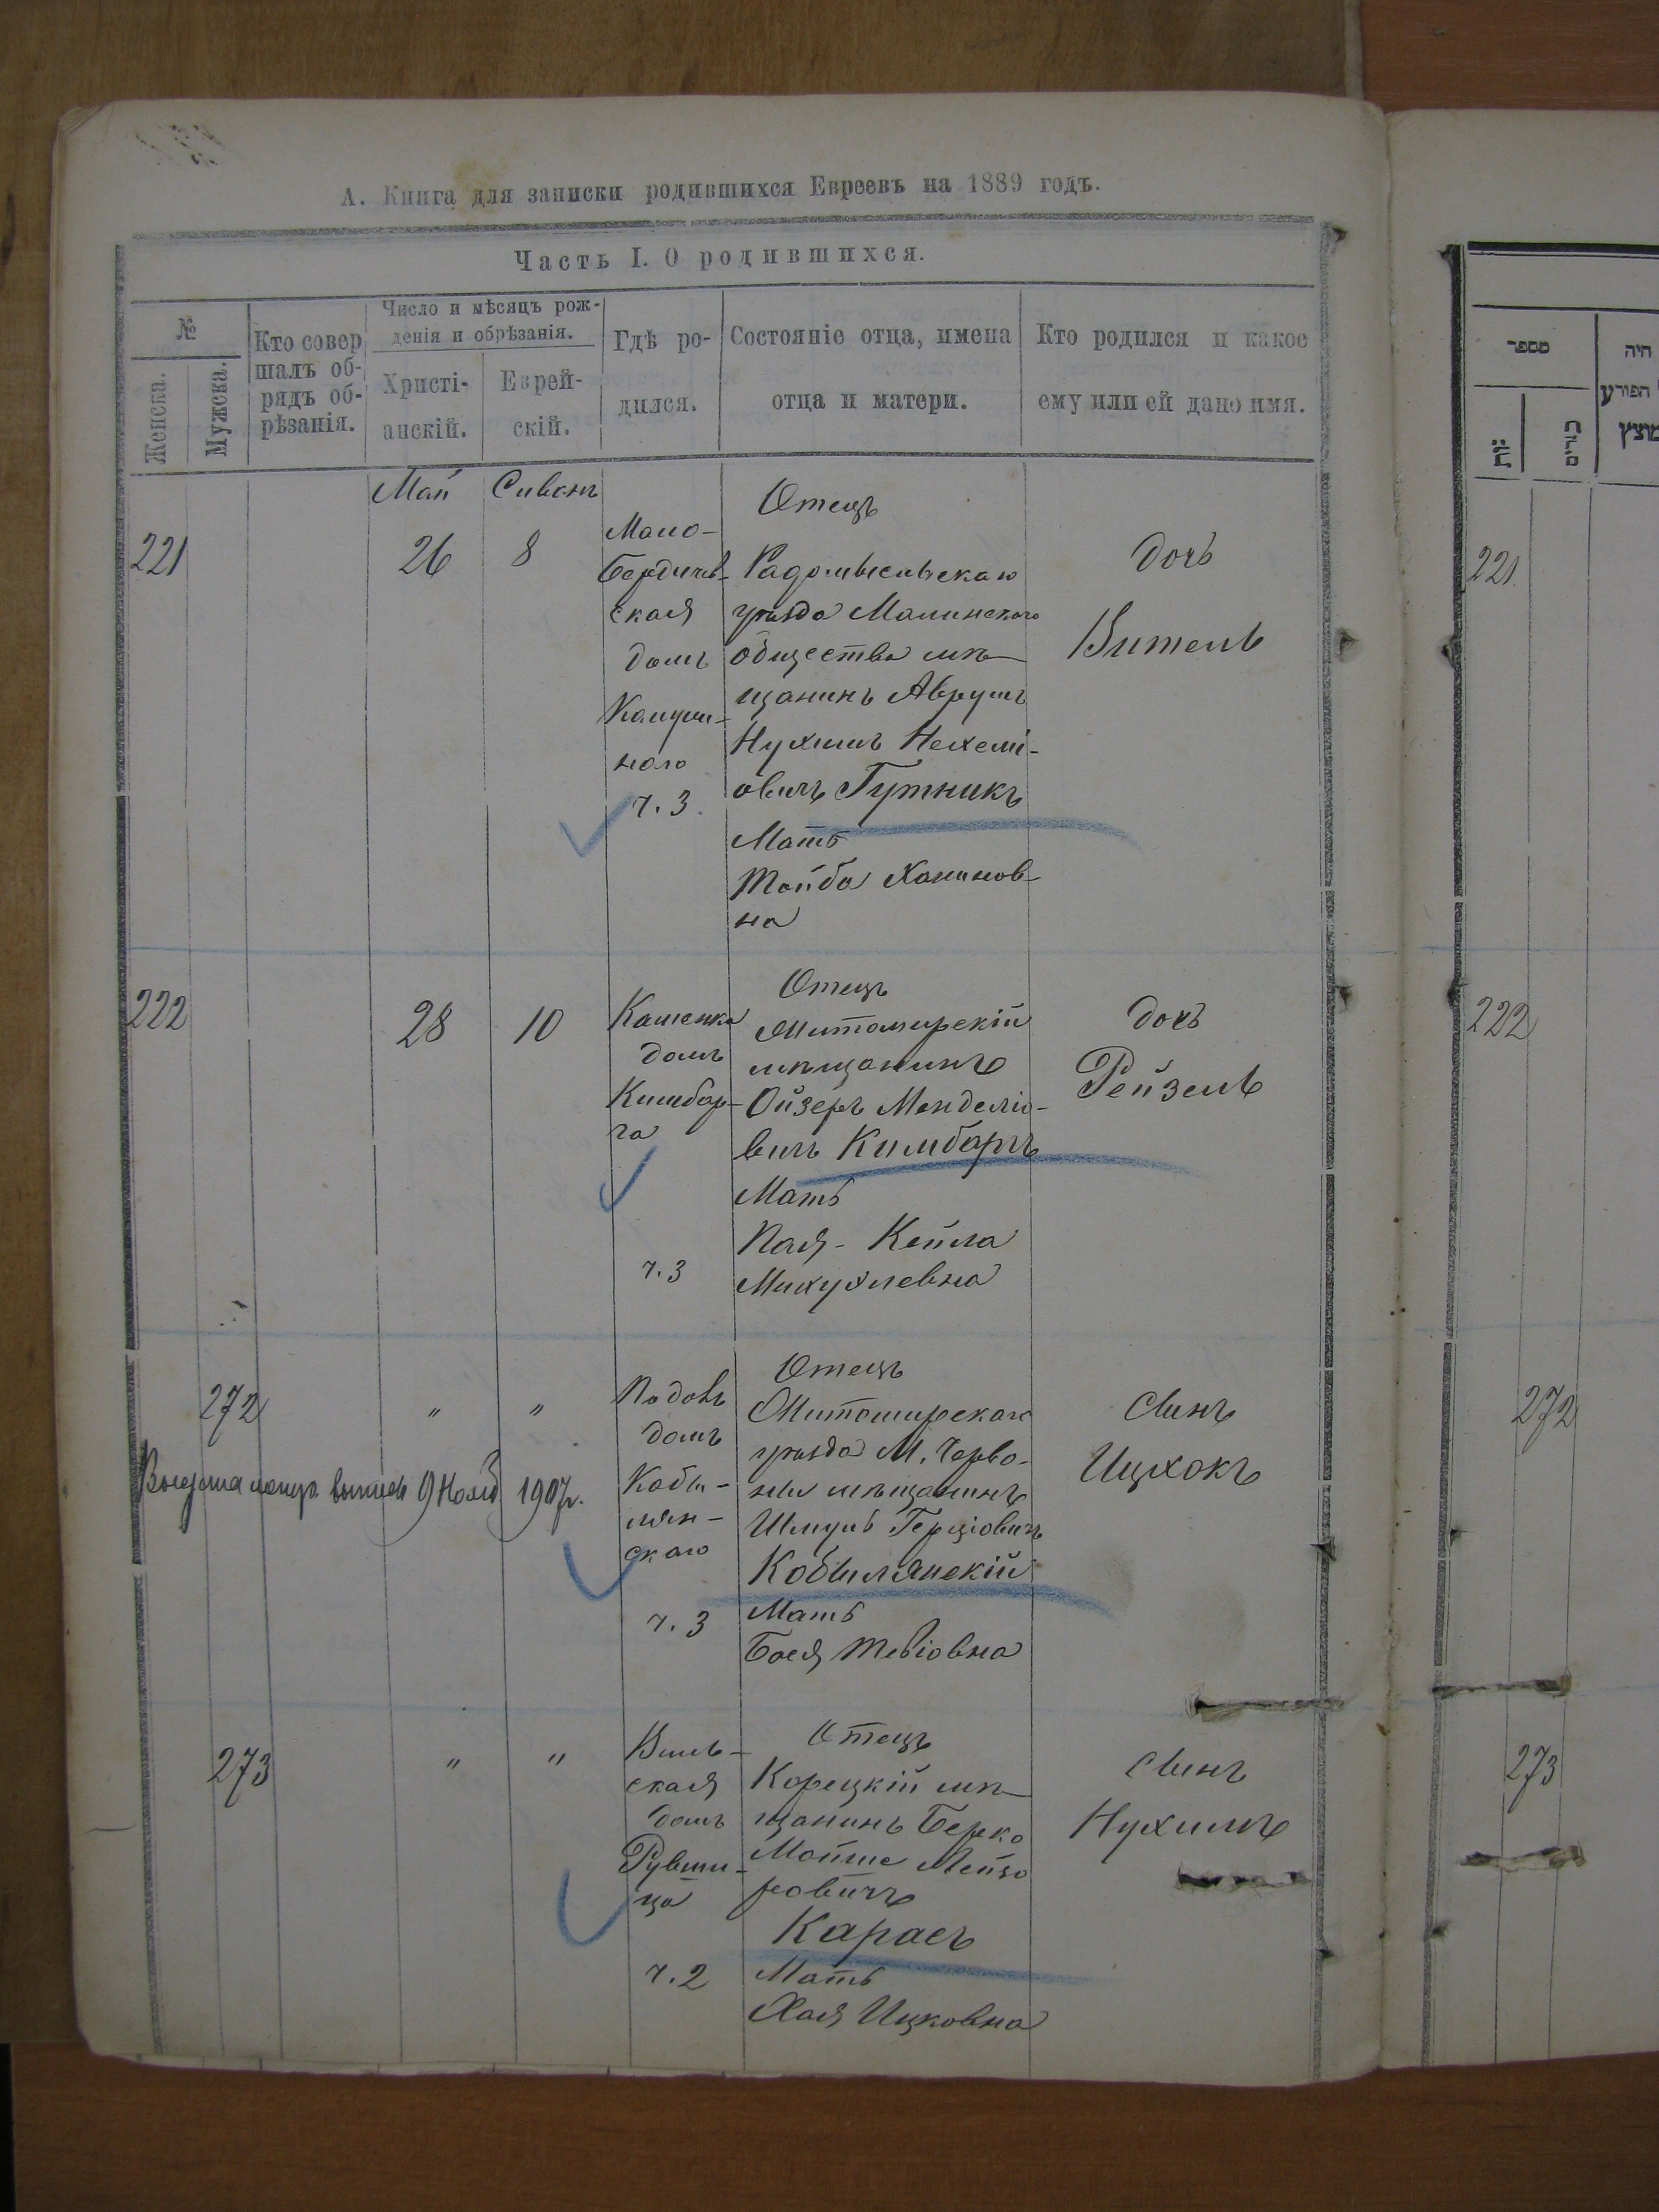 А. Книга для записки родившихся Евреевъ на 1889 годъ.
Часть I. О родившихся.
№
Женска.
Мужска.
Кто совер
шалъ об-
рядъ об-
рѣзанія.
Число и мѣсяцъ рож-
денія и обрѣзанія.
Христі-
анскій.
Еврей-
скій.
Гдѣ ро-
дился.
Состояніе отца, имена
отца и матери.
Кто родился и какое
ему или ей дано имя.
Май
Сивонъ
221
26
8
Мало-
Бердичев-
ская
домъ
ного
ч. 3.
Отецъ
Радомысльскаго
уѣзда Малинскаго
общества мѣ-
щанинъ Аврумъ
Нухимъ Нехемі-
овичъ Гутникъ
Мать
Тайба Хаимов-
на
дочь
Витель
222
28
10
Кашенка
домъ
Кимбар-
га
ч. 3
Отецъ
Житомирскій
мѣщанинъ
Ойзеръ Менделіо-
вичъ Кимбаргъ
Мать
Пая - Кейла
дочь
Рейзель
272
"
"
домъ
Кобы-
лян-
скаго
ч. 3
Отецъ
Житомирскаго
уѣзда М. Черво-
ни мѣщанинъ
Шмуль Герціовичъ
Кобылянскій
Мать
Бася Тевіовна
сынъ
Ицхокъ
9 Нояб 1907г.
273
"
"
Виль-
ская
домъ
ца
ч. 2
Отецъ
Корецкій мѣ-
щанинъ Берко
Мойше Лейзо
ровичъ
Карась
Мать
Хая Ицковна
сынъ
Нухимъ
מספר
חיה
הפורע
221
222
272
273